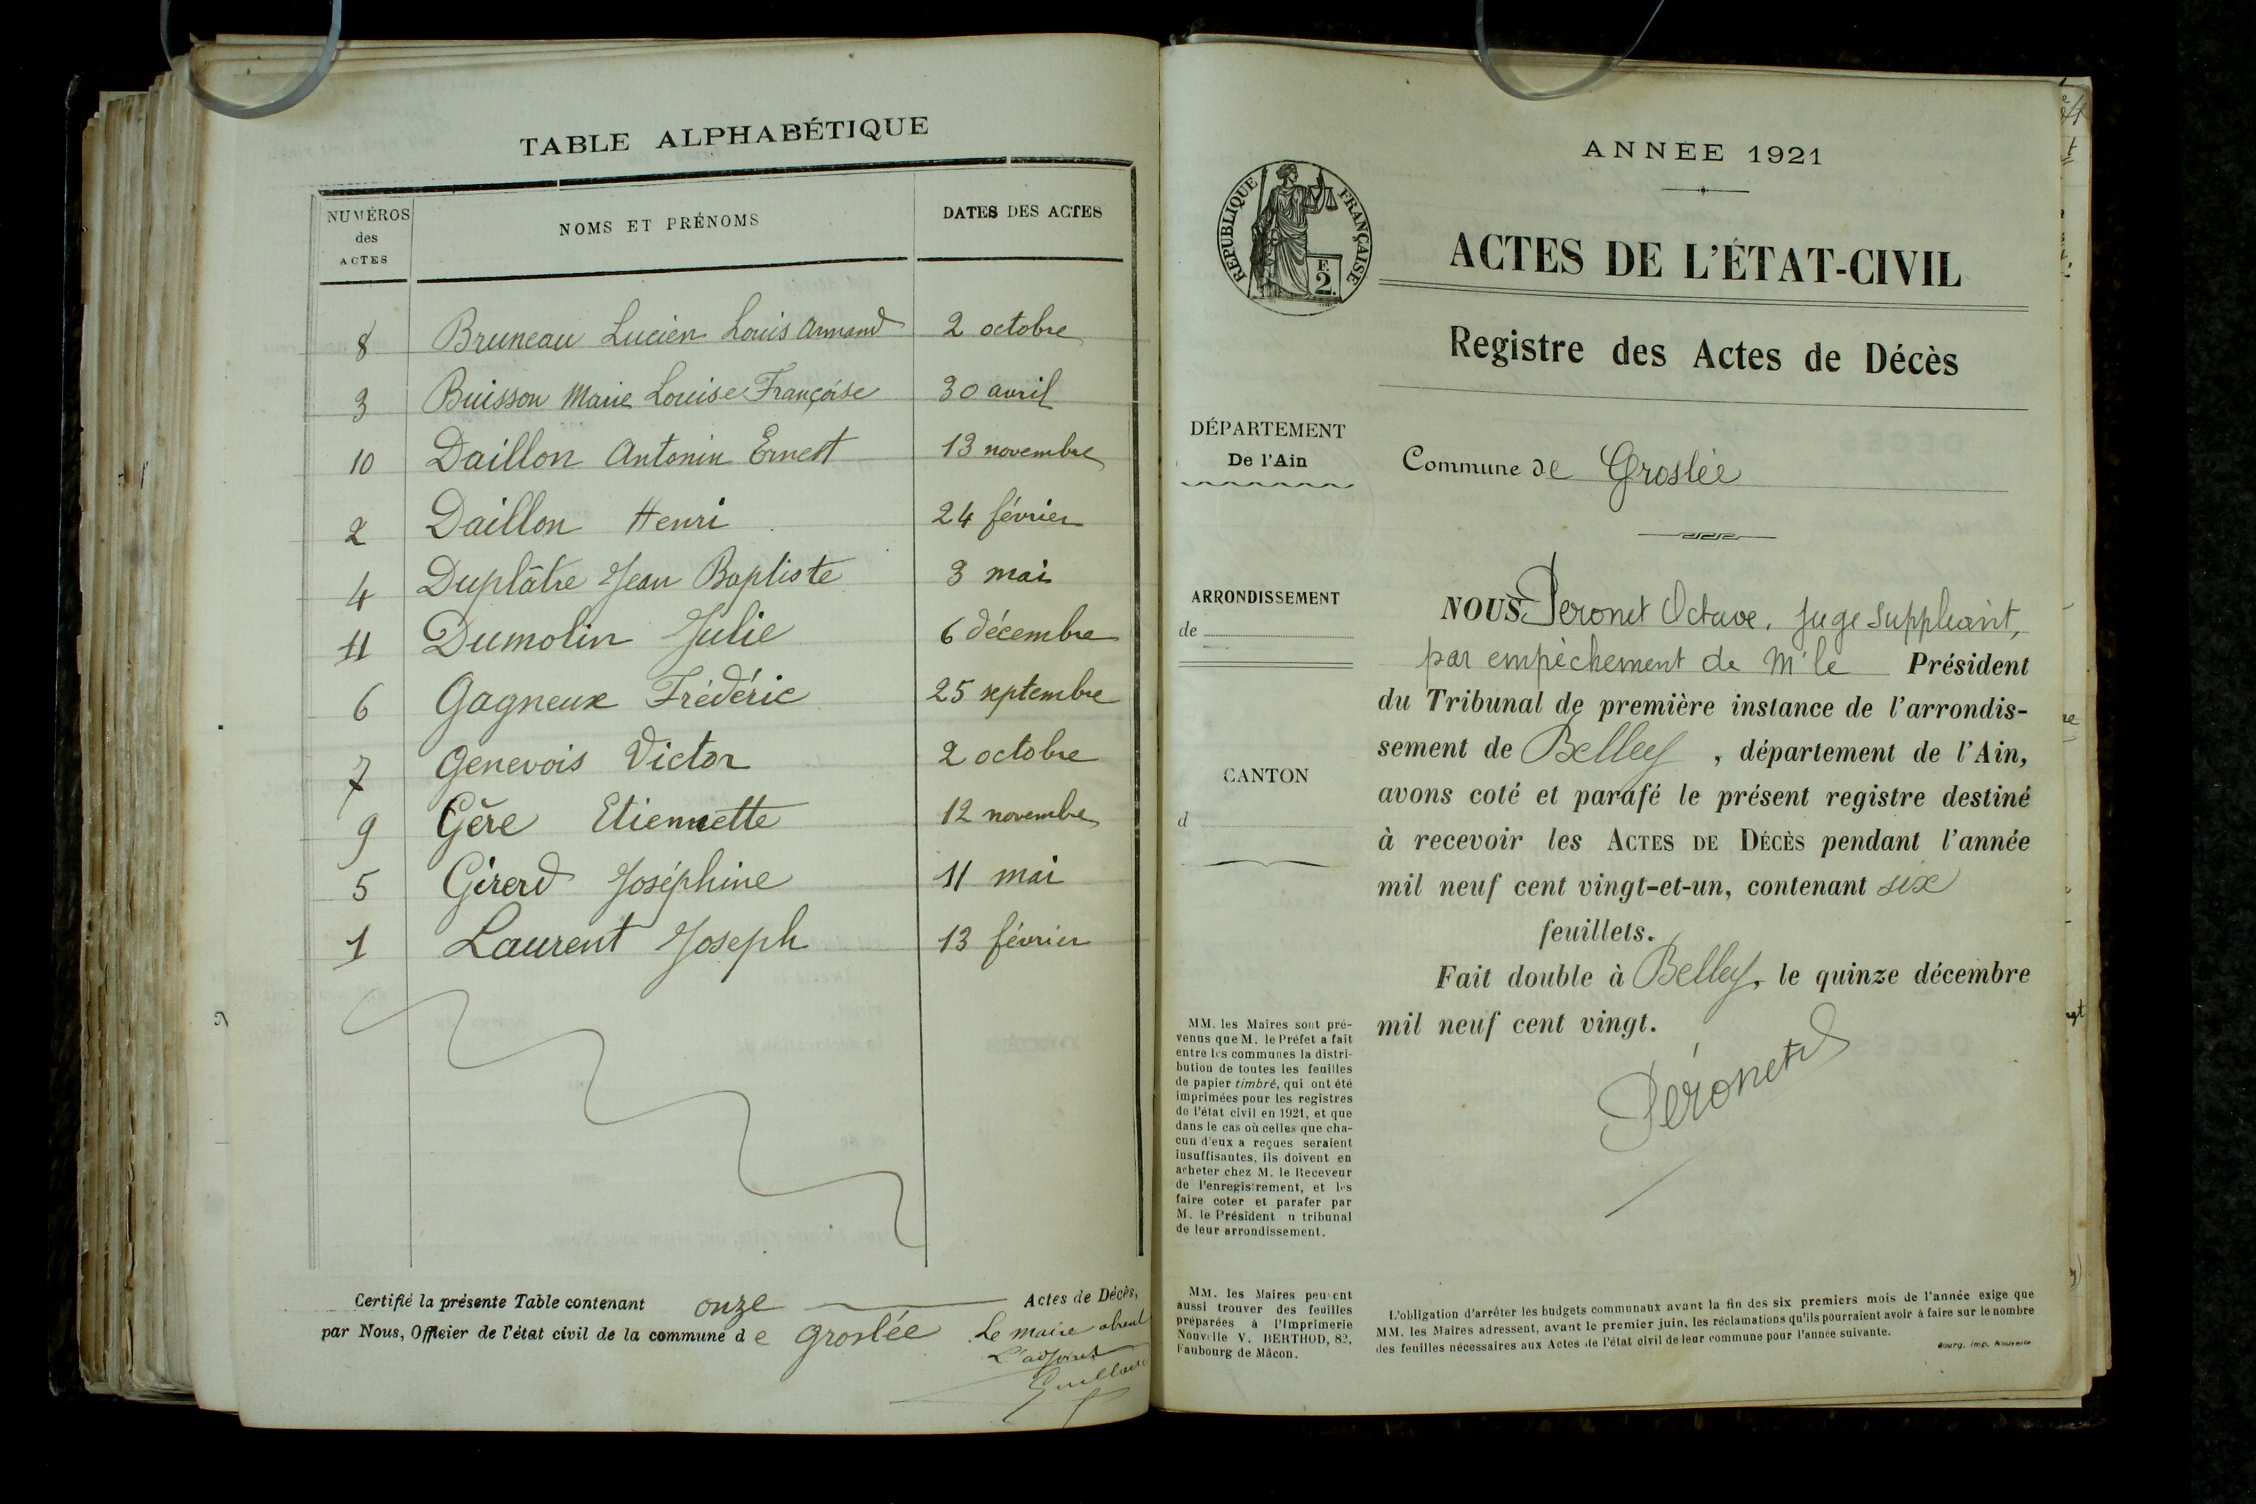 TABLE ALPHABÉTIQUE
NUMÉROS des ACTES
NOMS ET PRÉNOMS
DATES DES ACTES
8 Bruneau Lucien Louis Armand 2 octobre
3 Buisson Marie Louise Françoise 30 avril
10 Daillon Antonin Ernest 13 novembre
2 Daillon Henri 24 février
4 Duplâtre Jean Baptiste 3 mai
11 Dumolin Julie 6 décembre
6 Gagneux Frédéric 25 septembre
7 Genevois Victor 2 octobre
9 Gère Etiennette 12 novembre
5 Girerd Joséphine 11 mai
1 Laurent Joseph 13 février
Certifié la présente Table contenant onze Actes de Décès,
par Nous, Officier de l'état civil de la commune de Groslée Le maire absent
L'adjoint
ANNÉE 1921
RÉPUBLIQUE FRANÇAISE
F.
2.
ACTES DE L'ÉTAT-CIVIL
Registre des Actes de Décès
DÉPARTEMENT
De l'Ain
Commune de Groslée
ARRONDISSEMENT
de
CANTON
d
NOUS Peronet Octave, Juge Suppléant,
par empêchement de Mr le Président
du Tribunal de première instance de l'arrondis-
sement de Belley, département de l'Ain,
avons coté et parafé le présent registre destiné
à recevoir les ACTES DE DÉCÈS pendant l'année
mil neuf cent vingt-et-un, contenant six
feuillets.
Fait double à Belley, le quinze décembre
mil neuf cent vingt.
Péronet
MM. les Maires sont pré-
venus que M. le Préfet a fait
entre les communes la distri-
bution de toutes les feuilles
de papier timbré, qui ont été
imprimées pour les registres
de l'état civil en 1921, et que
dans le cas où celles que cha-
cun d'eux a reçues seraient
insuffisantes, ils doivent en
acheter chez M. le Receveur
de l'enregistrement, et les
faire coter et parafer par
M. le Président u tribunal
de leur arrondissement.
MM. les Maires peuvent
aussi trouver des feuilles
préparées à l'Imprimerie
Nouvelle V. BERTHOD, 82,
Faubourg de Mâcon.
L'obligation d'arrêter les budgets communaux avant la fin des six premiers mois de l'année exige que
MM. les Maires adressent, avant le premier juin, les réclamations qu'ils pourraient avoir à faire sur le nombre
des feuilles nécessaires aux Actes de l'état civil de leur commune pour l'année suivante.
Bourg, Imp. Nouvelle